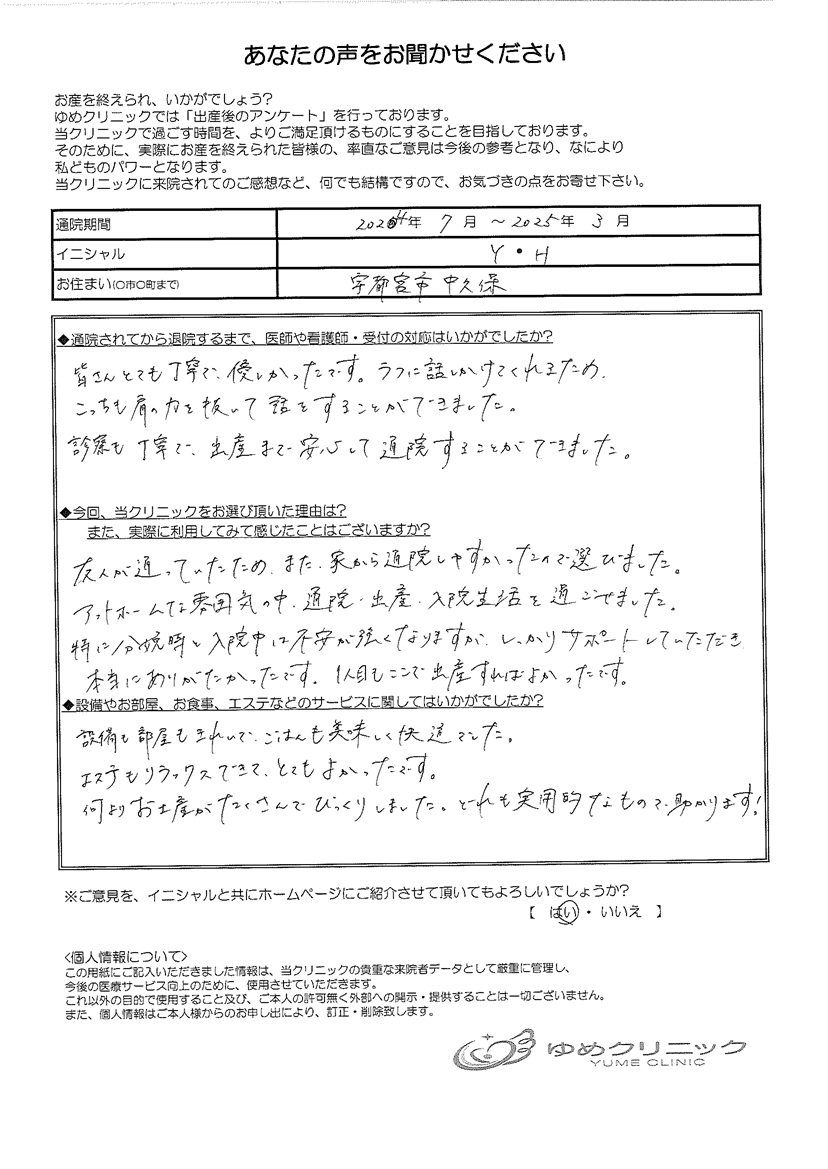 あなたの声をお聞かせください
お産を終えられ、いかがでしょう?
ゆめクリニックでは「出産後のアンケート」を行っております。
当クリニックで過ごす時間を、よりご満足頂けるものにすることを目指しております。
そのために、実際にお産を終えられた皆様の、率直なご意見は今後の参考となり、なにより
私どものパワーとなります。
当クリニックに来院されてのご感想など、何でも結構ですので、お気づきの点をお寄せ下さい。
通院期間 2024年 7月 ～2025年 3月
イニシャル Y・H
お住まい(〇市〇町まで) 宇都宮市 中久保
◆通院されてから退院するまで、医師や看護師・受付の対応はいかがでしたか?
皆さんとても丁寧で、優しかったです。ラフに話しかけてくれるため、
こっちも肩の力を抜いて話をすることができました。
診察も丁寧で、出産まで安心して通院することができました。
◆今回、当クリニックをお選び頂いた理由は?
また、実際に利用してみて感じたことはございますか?
友人が通っていたため、また、家から通院しやすかったので選びました。
アットホームな雰囲気の中、通院、出産、入院生活を過ごせました。
特に分娩時と入院中は不安が強くなりますが、しっかりサポートしていただき
本当にありがたかったです。1人目もここで出産すればよかったです。
◆設備やお部屋、お食事、エステなどのサービスに関してはいかがでしたか?
設備も部屋もきれいで、ごはんも美味しく快適でした。
エステもリラックスできて、とてもよかったです。
何よりお土産がたくさんでびっくりしました。どれも実用的なもので助かります!
※ご意見を、イニシャルと共にホームページにご紹介させて頂いてもよろしいでしょうか?
【 はい ・ いいえ 】
<個人情報について>
この用紙にご記入いただきました情報は、当クリニックの貴重な来院者データとして厳重に管理し、
今後の医療サービス向上のために、使用させていただきます。
これ以外の目的で使用すること及び、ご本人の許可無く外部への開示・提供することは一切ございません。
また、個人情報はご本人様からのお申し出により、訂正・削除致します。
ゆめクリニック
YUME CLINIC